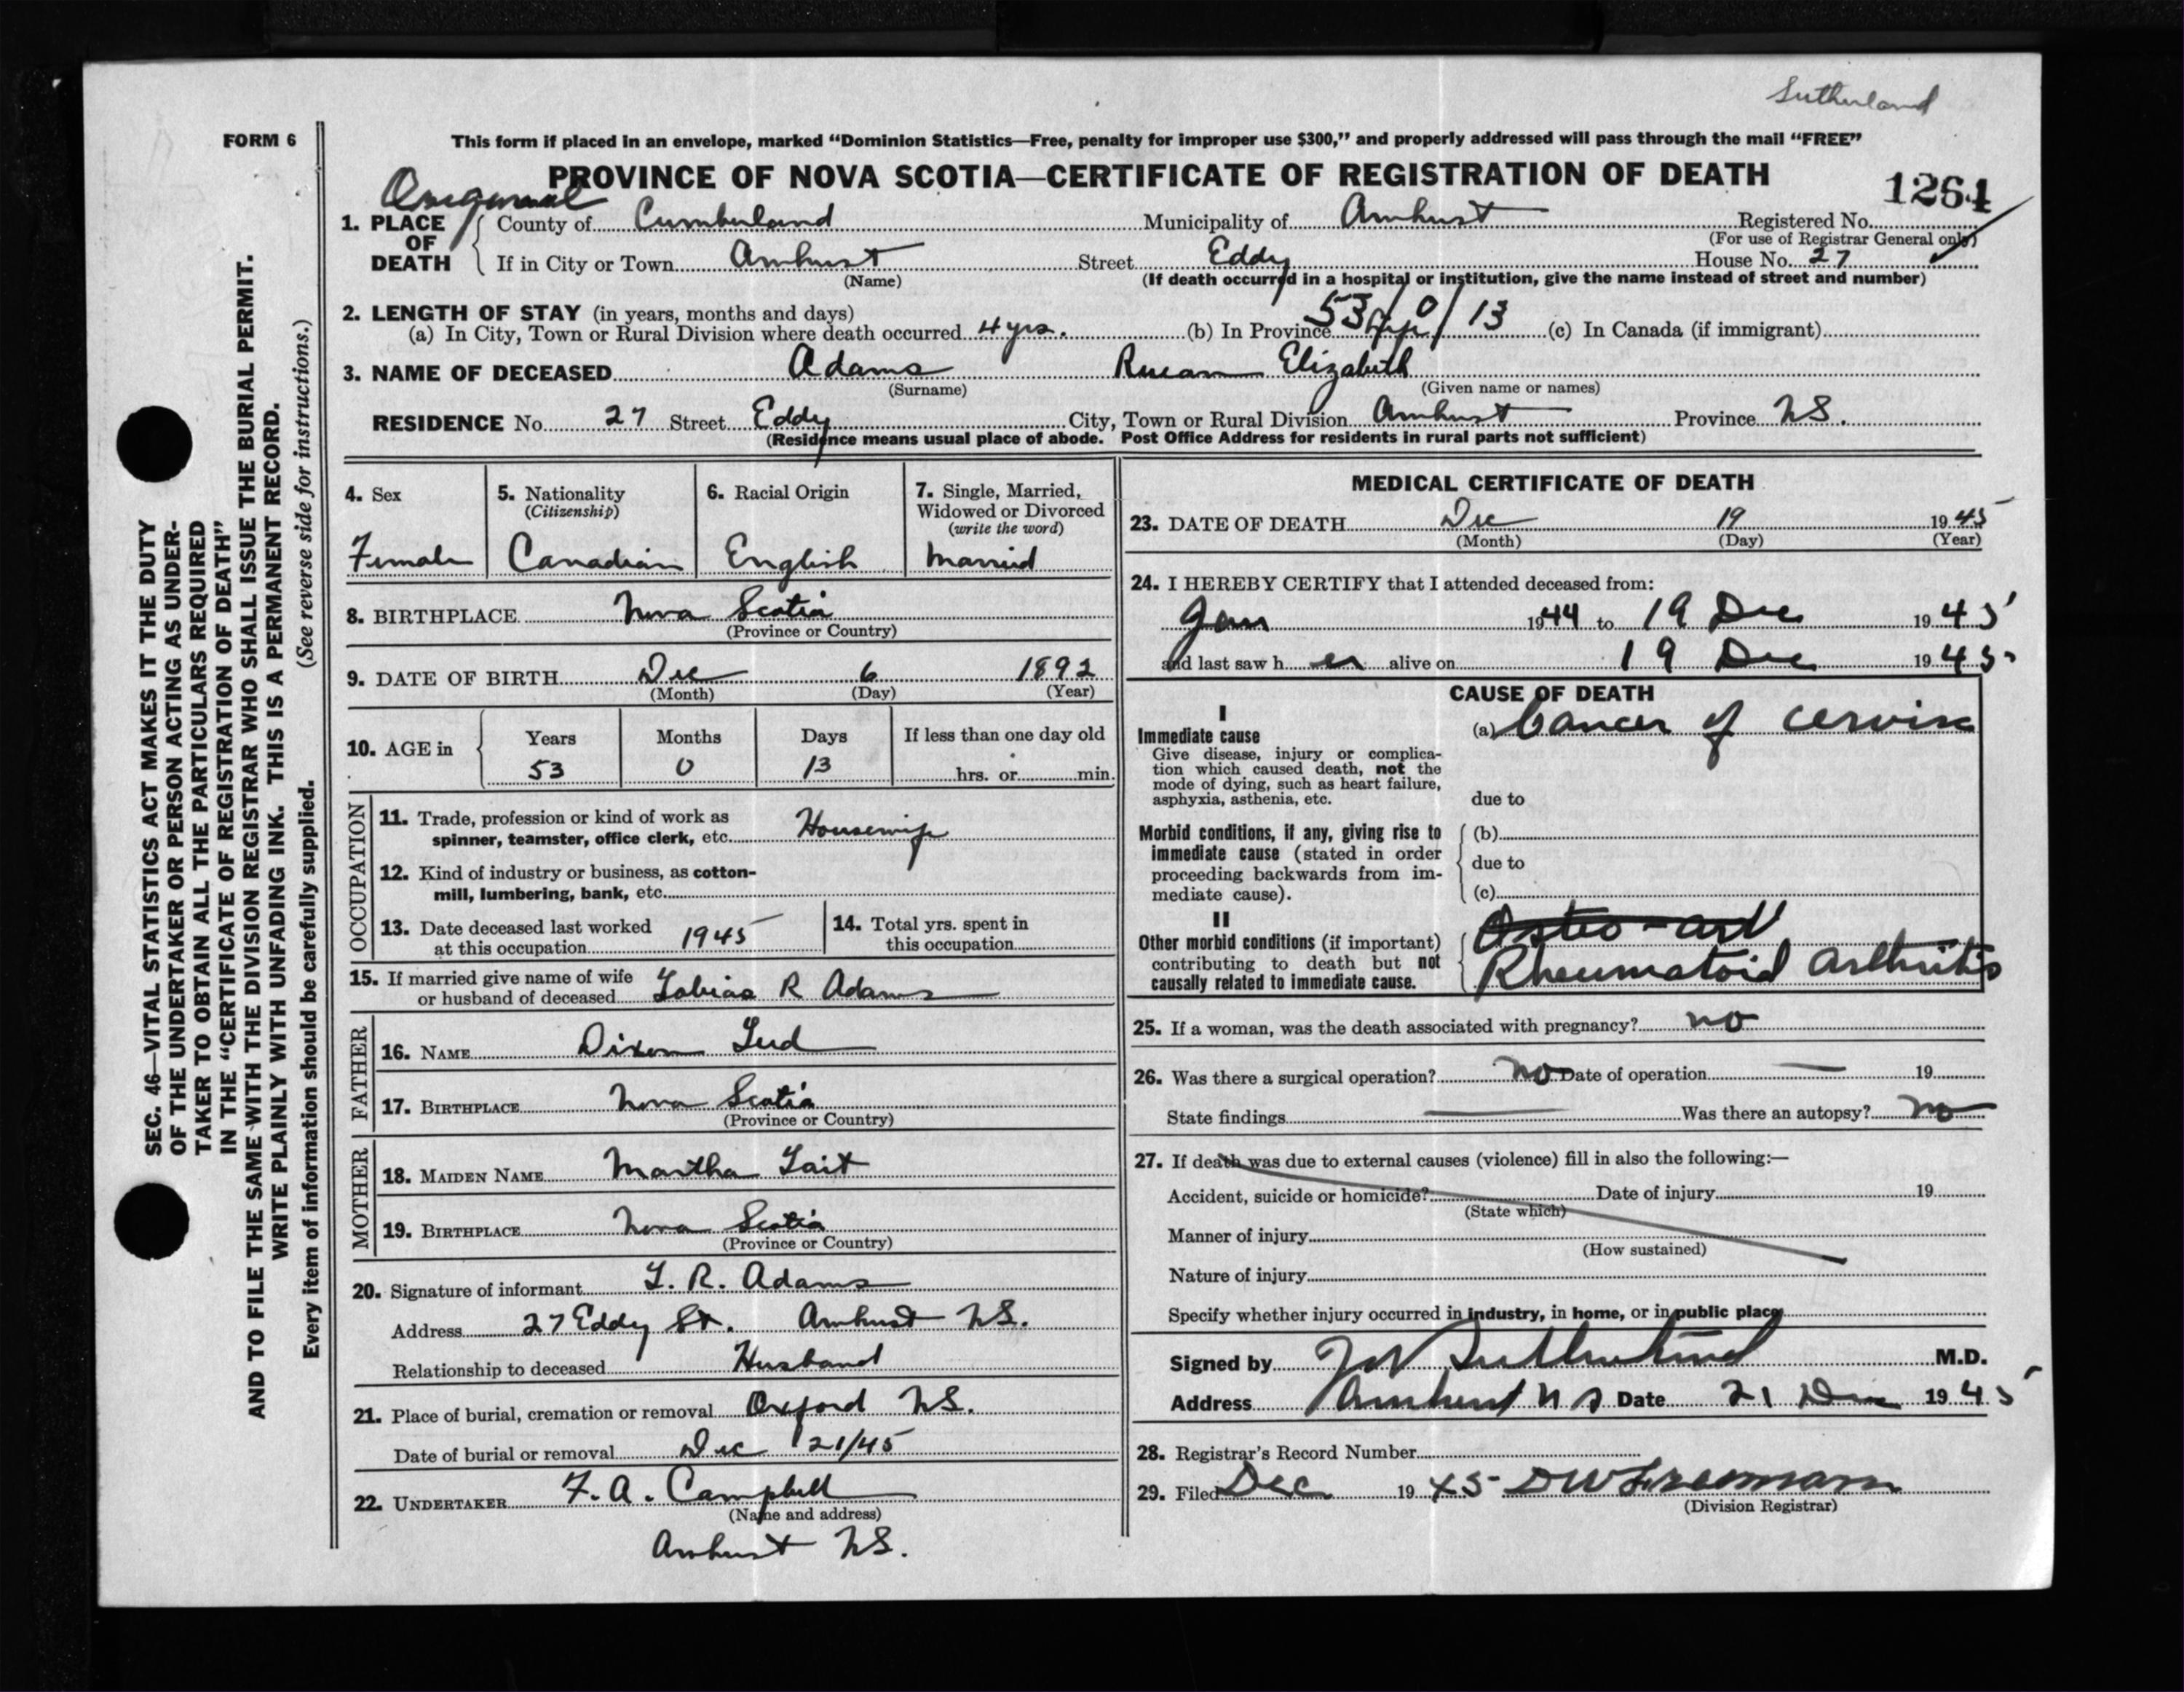 Sutherland
FORM 6
This form if placed in an envelope, marked “Dominion Statistics—Free, penalty for improper use $300,” and properly addressed will pass through the mail “FREE”
PROVINCE OF NOVA SCOTIA—CERTIFICATE OF REGISTRATION OF DEATH
Original
1264
1. PLACE OF DEATH County of Cumberland Municipality of Amherst Registered No.
(For use of Registrar General only)
If in City or Town Amherst Street Eddy House No. 27
(Name) (If death occurred in a hospital or institution, give the name instead of street and number)
2. LENGTH OF STAY (in years, months and days) 53/0/13
(a) In City, Town or Rural Division where death occurred 4 yrs. (b) In Province (c) In Canada (if immigrant)
3. NAME OF DECEASED Adams Elizabeth
(Surname) (Given name or names)
RESIDENCE No. 27 Street Eddy City, Town or Rural Division Amherst Province NS.
(Residence means usual place of abode. Post Office Address for residents in rural parts not sufficient)
4. Sex
Female
5. Nationality
(Citizenship)
Canadian
6. Racial Origin
English
7. Single, Married,
Widowed or Divorced
(write the word)
Married
8. BIRTHPLACE Nova Scotia
(Province or Country)
9. DATE OF BIRTH Dec 6 1892
(Month) (Day) (Year)
10. AGE in Years Months Days If less than one day old
53 0 13 hrs. or min.
OCCUPATION
11. Trade, profession or kind of work as
spinner, teamster, office clerk, etc. Housewife
12. Kind of industry or business, as cotton-
mill, lumbering, bank, etc.
13. Date deceased last worked
at this occupation 1945
14. Total yrs. spent in
this occupation
15. If married give name of wife
or husband of deceased Tobias R Adams
FATHER
16. NAME Dixon
17. BIRTHPLACE Nova Scotia
(Province or Country)
MOTHER
18. MAIDEN NAME Martha Tait
19. BIRTHPLACE Nova Scotia
(Province or Country)
20. Signature of informant T. R. Adams
Address 27 Eddy St. Amherst NS.
Relationship to deceased Husband
21. Place of burial, cremation or removal Oxford NS.
Date of burial or removal Dec 21/45
22. UNDERTAKER F. A. Campbell
(Name and address)
Amherst NS.
MEDICAL CERTIFICATE OF DEATH
23. DATE OF DEATH Dec 19 1945
(Month) (Day) (Year)
24. I HEREBY CERTIFY that I attended deceased from:
Jan 1944 to 19 Dec 1945
and last saw h er alive on 19 Dec 1945
CAUSE OF DEATH
I
Immediate cause
Give disease, injury or complica-
tion which caused death, not the
mode of dying, such as heart failure,
asphyxia, asthenia, etc.
(a) Cancer of cervix
due to
Morbid conditions, if any, giving rise to
immediate cause (stated in order
proceeding backwards from im-
mediate cause).
(b)
due to
(c)
II
Other morbid conditions (if important)
contributing to death but not
causally related to immediate cause.
Osteo-art
Rheumatoid arthritis
25. If a woman, was the death associated with pregnancy? no
26. Was there a surgical operation? no Date of operation — 19
State findings — Was there an autopsy? no
27. If death was due to external causes (violence) fill in also the following:—
Accident, suicide or homicide? Date of injury 19
(State which)
Manner of injury
(How sustained)
Nature of injury
Specify whether injury occurred in industry, in home, or in public place
Signed by Sutherland M.D.
Address Amherst N S Date 21 Dec 1945
28. Registrar's Record Number
29. Filed Dec 1945 D W Freeman
(Division Registrar)
SEC. 46—VITAL STATISTICS ACT MAKES IT THE DUTY
OF THE UNDERTAKER OR PERSON ACTING AS UNDER-
TAKER TO OBTAIN ALL THE PARTICULARS REQUIRED
IN THE “CERTIFICATE OF REGISTRATION OF DEATH”
AND TO FILE THE SAME WITH THE DIVISION REGISTRAR WHO SHALL ISSUE THE BURIAL PERMIT.
WRITE PLAINLY WITH UNFADING INK. THIS IS A PERMANENT RECORD.
Every item of information should be carefully supplied. (See reverse side for instructions.)